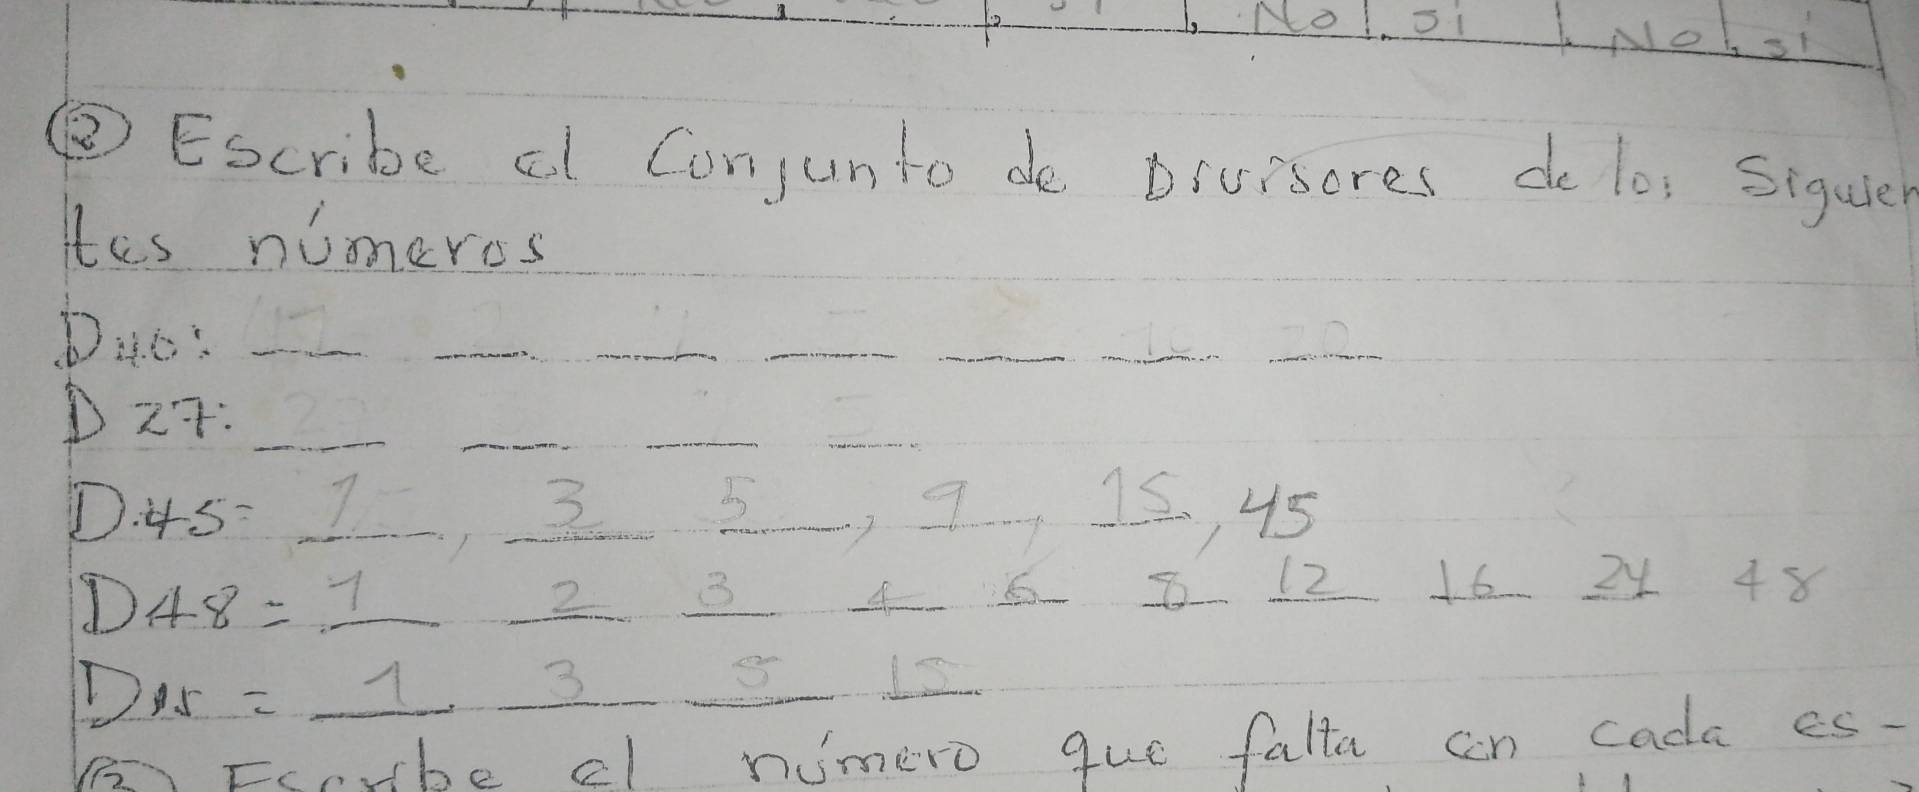 No si No si
② Escribe el Conjunto de Divisores de los Siguien
tes números
D40:
D 27:
D.45= 1, 3 5, 9, 15, 45
D48 = 1 2 3 4 6 8 12 16 24 48
D15 = 1 3 5 15
③ Escribe el número que falta en cada es-